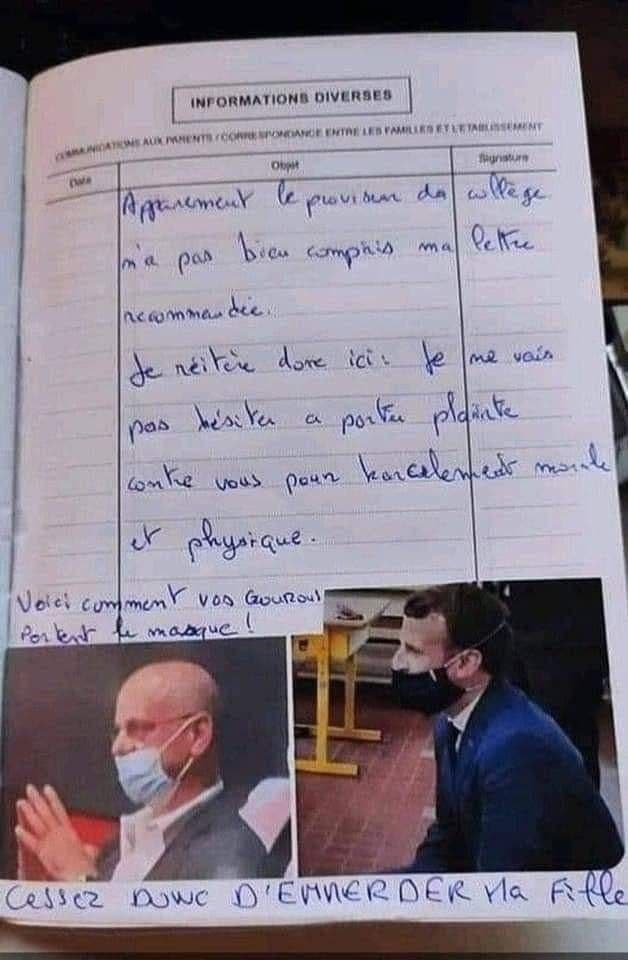 INFORMATIONS DIVERSES
COMMUNICATIONS AUX PARENTS / CORRESPONDANCE ENTRE LES FAMILLES ET L'ETABLISSEMENT
Date Objet Signature
Apparement le proviseur du collège
n'a pas bien compris ma lettre
recommandée.
Je réitère donc ici : Je ne vais
pas hésiter a porter plainte
contre vous pour harcelement morale
et physique.
Voici comment vos Gourous
Portent le masque !
Cessez DONC D'EMMERDER Ma Fille